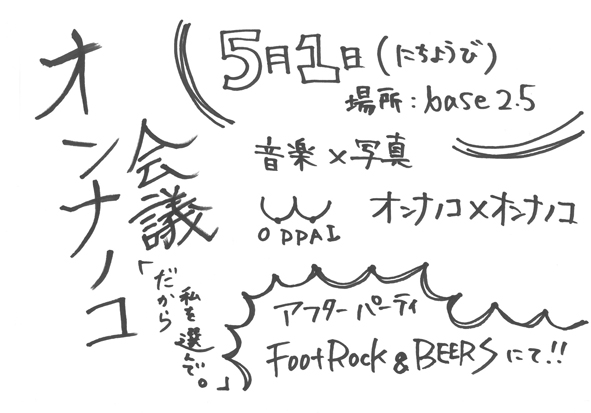 オンナノコ
会議
「だから
私を選んで。」
5月1日(にちようび)
場所:base 2.5
音楽×写真
ODDAI
オンナノコ×オンナノコ
アフターパーティ
FootRock & BEERSにて!!